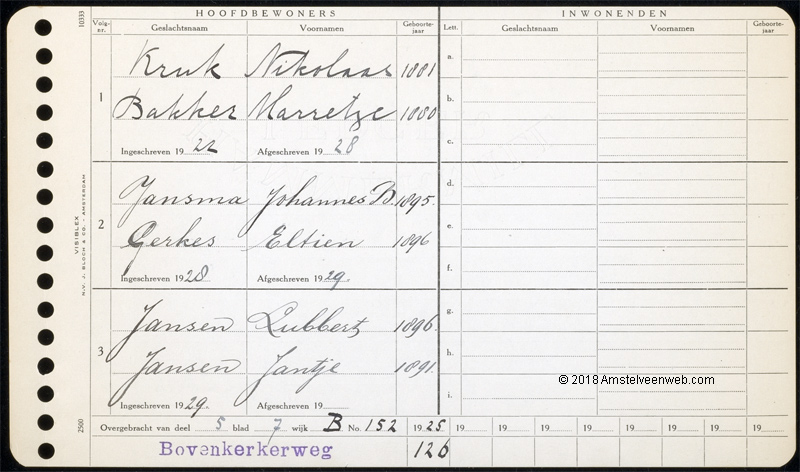 HOOFDBEWONERS INWONENDEN
Volg-nr. Geslachtsnaam Voornamen Geboorte-jaar Lett. Geslachtsnaam Voornamen Geboorte-jaar
1
Kruk Nikolaas 1881 a.
Bakker Marretje 1880 b.
Ingeschreven 1922 Afgeschreven 1928 c.
2
Jansma Johannes B. 1895. d.
Gerkes Eltien 1896 e.
Ingeschreven 1928 Afgeschreven 1929. f.
3
Jansen Lubbert 1896. g.
Jansen Jantje 1891. h.
Ingeschreven 1929. Afgeschreven 19 i.
© 2018 Amstelveenweb.com
Overgebracht van deel 5 blad 7 wijk B. No. 152 1925 19 19 19 19 19 19 19 19
Bovenkerkerweg 126
10333
VISIBLEX
N.V. J. BLOCH & CO. - AMSTERDAM
2500